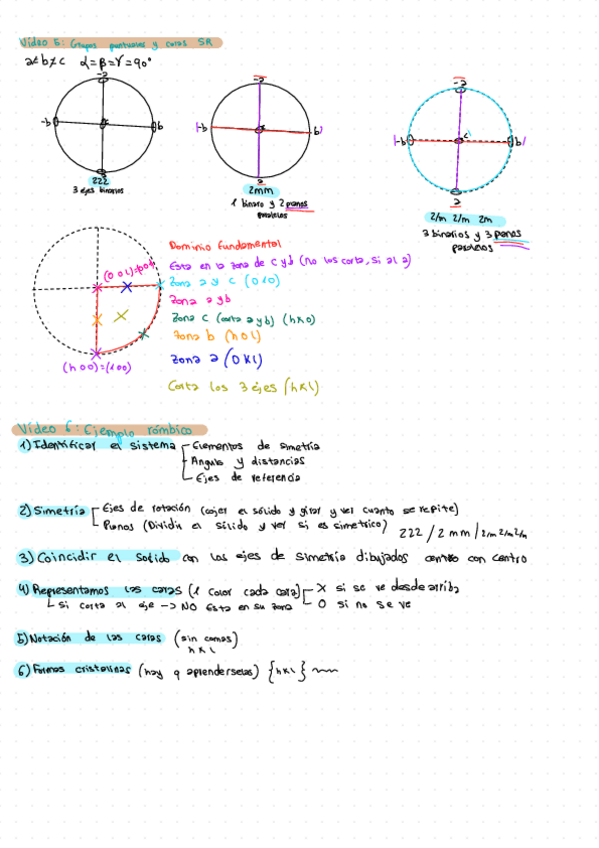 Vídeo 5: Grupos puntuales y caras SR
a≠b≠c α=β=γ=90°
-a
-b
c
b
a
222
3 ejes binarios
-a
-b
c
b
a
2mm
1 binario y 2 planos
paralelos
-a
-b
c
b
a
2/m 2/m 2m
3 binarios y 3 planos
paralelos
(001)=poli
(h00)=(100)
Dominio fundamental
Esta en la zona de c y b (no los corta, si al a)
Zona a y c (010)
Zona a y b
Zona c (corta a y b) (hk0)
Zona b (h0l)
Zona a (0kl)
Corta los 3 ejes (hkl)
Vídeo 6: Ejemplo rómbico
1) Identificar el sistema
Elementos de simetría
Angulo y distancias
Ejes de referencia
2) Simetría
Ejes de rotación (cojer el sólido y girar y ver cuanto se repite)
Planos (Dividir el sólido y ver si es simetrico) 222 / 2mm / 2/m 2/m 2/m
3) Coincidir el solido con los ejes de simetría dibujados centro con centro
4) Representamos las caras (1 color cada cara)
X si se ve desde arriba
O si no se ve
si corta al eje -> NO esta en su zona
5) Notación de las caras (sin comas)
hkl
6) Formas cristalinas (hay q aprenderselas) {hkl}